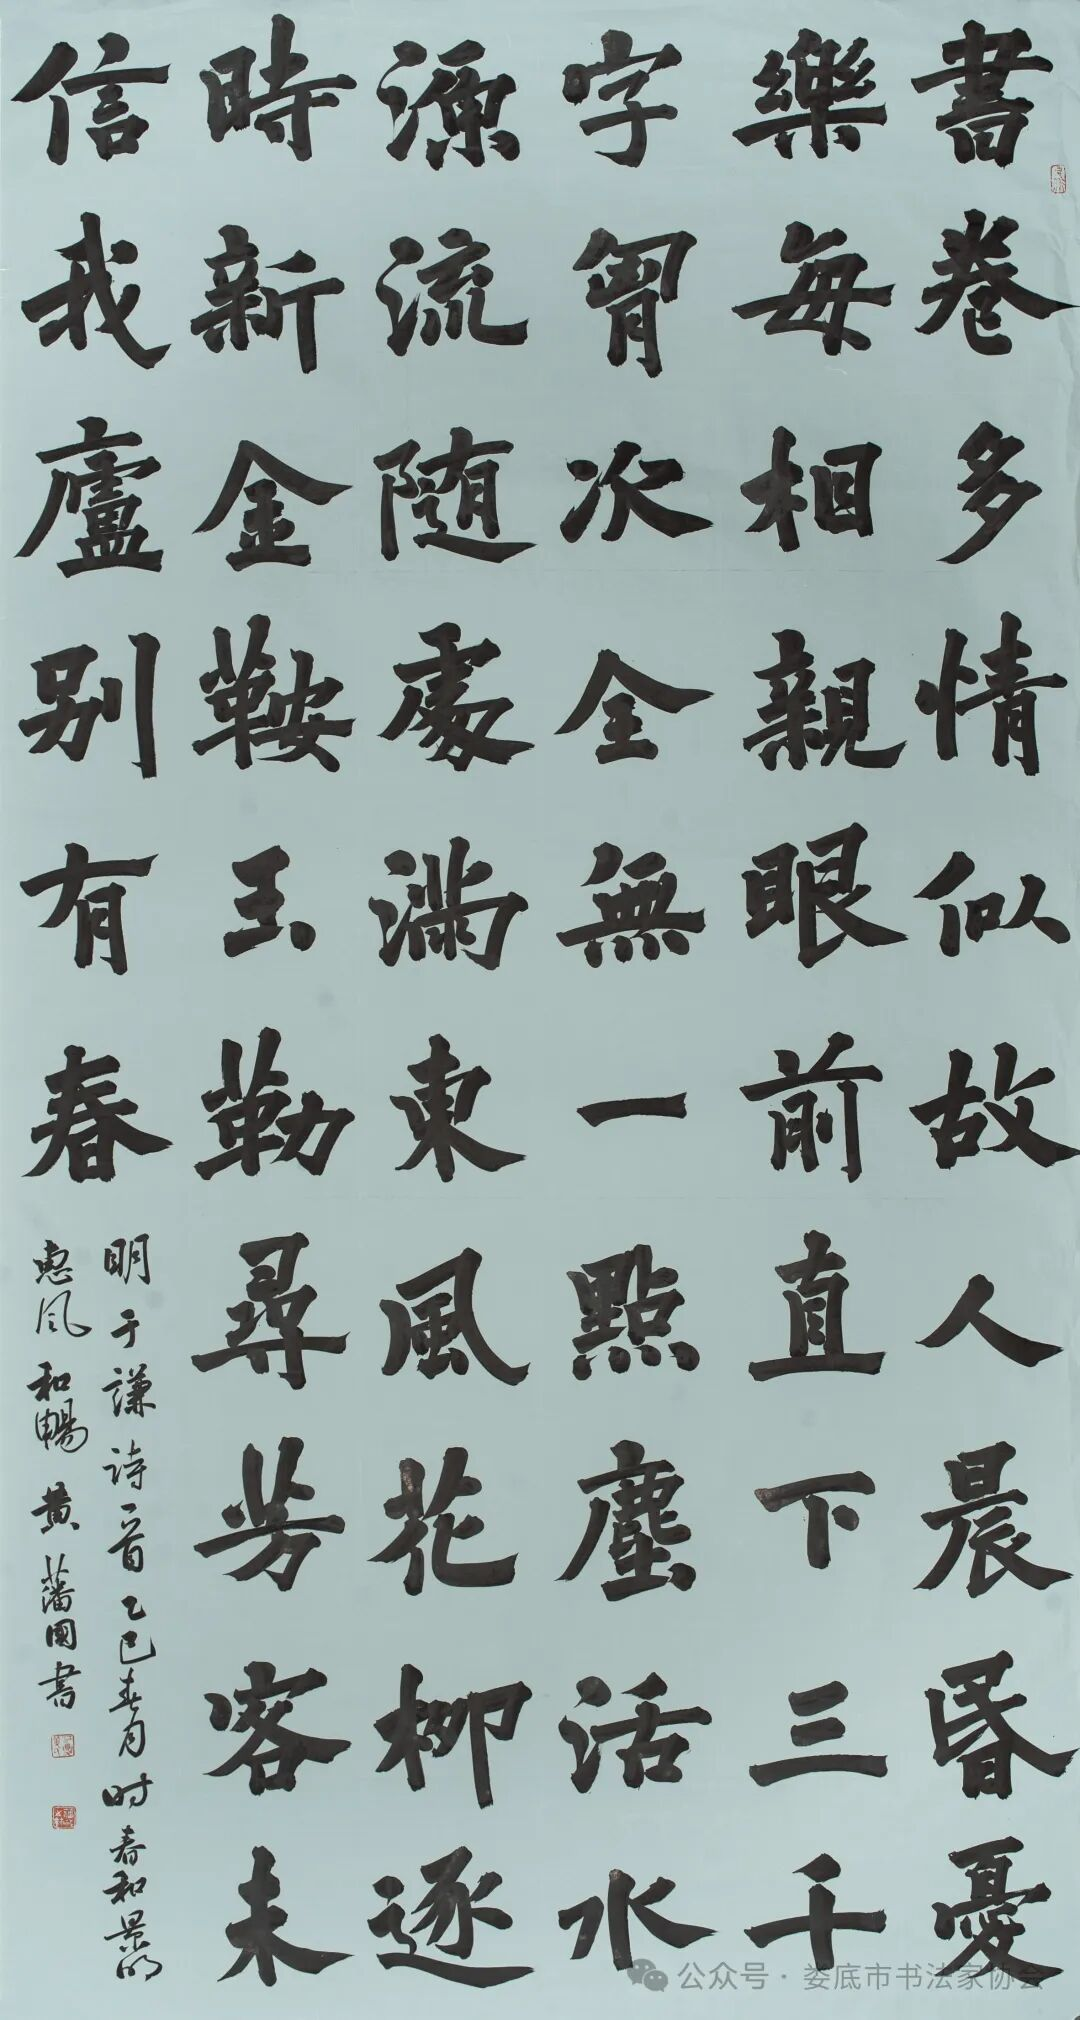 書卷多情似故人晨昏憂
樂每相親眼前直下三千
字胷次全無一點塵活水
源流随處滿東風花柳逐
時新金鞍玉勒尋芳客未
信我廬别有春
明于謙詩一首乙巳春月时春和景明
惠风和暢黄藩國書
公众号·娄底市书法家协会